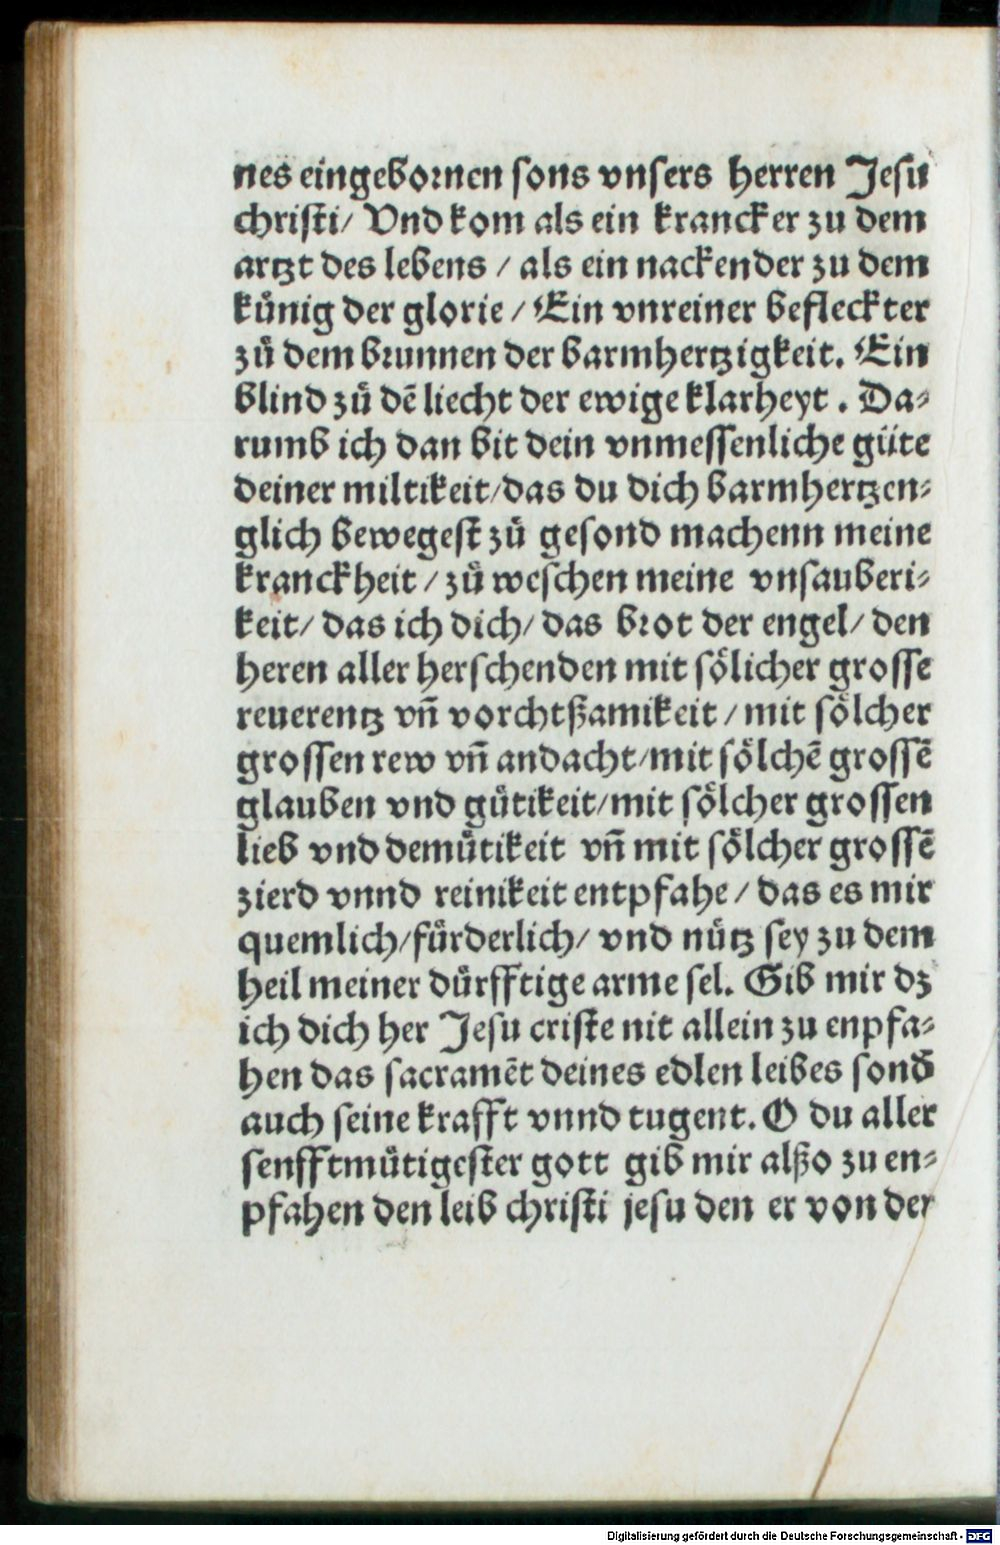 nes eingebornen sons vnsers herren Jesu
christi/ Vnd kom als ein krancker zu dem
artzt des lebens / als ein nackender zu dem
künig der glorie / Ein vnreiner befleckter
zů dem brunnen der barmhertzigkeit. Ein
blind zů dē liecht der ewige klarheyt . Da⸗
rumb ich dan bit dein vnmessenliche güte
deiner miltikeit/das du dich barmhertzen⸗
glich bewegest zů gesond machenn meine
kranckheit / zů weschen meine vnsauberi⸗
keit/ das ich dich/ das brot der engel/ den
heren aller herschenden mit sölicher grosse
reuerentz vn̄ vorchtßamikeit / mit sölcher
grossen rew vn̄ andacht/mit sölchē grossē
glauben vnd gütikeit/mit sölcher grossen
lieb vnd demütikeit vn̄ mit sölcher grossē
zierd vnnd reinikeit entpfahe / das es mir
quemlich/fürderlich/ vnd nütz sey zu dem
heil meiner dürfftige arme sel. Gib mir dz
ich dich her Jesu criste nit allein zu enpfa⸗
hen das sacramēt deines edlen leibes sond̄
auch seine krafft vnnd tugent. O du aller
senfftmütigester gott gib mir alßo zu en⸗
pfahen den leib christi jesu den er von der
Digitalisierung gefördert durch die Deutsche Forschungsgemeinschaft - DFG